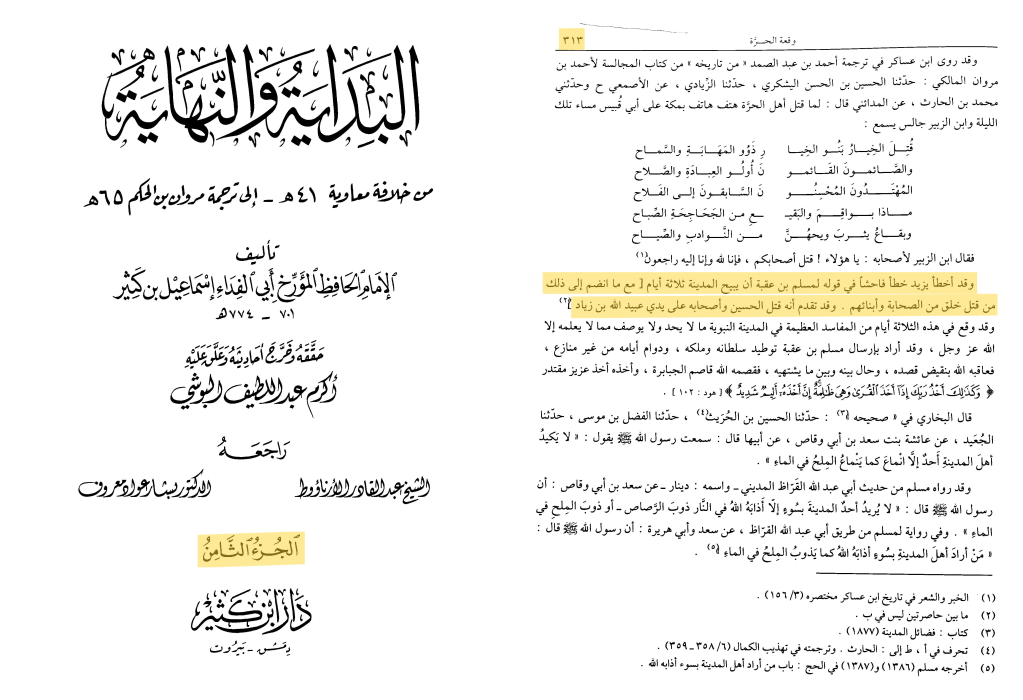 البداية والنهاية
من خلافة معاوية ٤١ هـ - إلى ترجمة مروان بن الحكم ٦٥ هـ
تأليف
الإمام الحافظ المؤرخ أبي الفداء إسماعيل بن كثير
٧٠١ - ٧٧٤ هـ
حققه وخرج أحاديثه وعلق عليه
أكرم عبد اللطيف البوشي
راجعه
الشيخ عبد القادر الأرناؤوط الدكتور بشار عواد معروف
الجزء الثامن
دار ابن كثير
دمشق - بيروت
وقعة الحرَّة ٣١٣
وقد روى ابن عساكر في ترجمة أحمد بن عبد الصمد « من تاريخه » من كتاب المجالسة لأحمد بن
مروان المالكي : حدّثنا الحسين بن الحسن اليشكري ، حدّثنا الزّيادي ، عن الأصمعي ح وحدّثني
محمد بن الحارث ، عن المدائني قال : لما قتل أهل الحرَّة هتف هاتف بمكة على أبي قُبيس مساء تلك
الليلة وابن الزبير جالس يسمع :
قُتِـلَ الخِيـارُ بَنُـو الخِيـا رِ ذَوُو المَهَـابَـةِ والسَّمـاح
والصَّـائمـونَ القَـائمـو نَ أُولُـو العِبـادَةِ والصَّـلاح
المُهْتَـدُونَ المُحْسِنُـو نَ السَّـابقـونَ إلـى الفَـلاح
مـاذا بـواقِـمَ والبَقيـ ـعِ مـن الجَحَـاجِحَـةِ الصِّبـاح
وبِقـاعُ يثـربَ ويحهُـنَّ مـن النَّـوادبِ والصِّيـاح
فقال ابن الزبير لأصحابه : يا هؤلاء ! قتل أصحابكم ، فإنا لله وإنا إليه راجعون(١)
وقد أخطأ يزيد خطأ فاحشاً في قوله لمسلم بن عقبة أن يبيح المدينة ثلاثة أيام [ مع ما انضم إلى ذلك
من قتل خلق من الصحابة وأبنائهم . وقد تقدم أنه قتل الحسين وأصحابه على يدي عبيد الله بن زياد ](٢)
وقد وقع في هذه الثلاثة أيام من المفاسد العظيمة في المدينة النبوية ما لا يحد ولا يوصف مما لا يعلمه إلا
الله عز وجل ، وقد أراد بإرسال مسلم بن عقبة توطيد سلطانه وملكه ، ودوام أيامه من غير منازع ،
فعاقبه الله بنقيض قصده ، وحال بينه وبين ما يشتهيه ، فقصمه الله قاصم الجبابرة ، وأخذه أخذ عزيز مقتدر
﴿ وَكَذَٰلِكَ أَخْذُ رَبِّكَ إِذَا أَخَذَ الْقُرَىٰ وَهِيَ ظَالِمَةٌ إِنَّ أَخْذَهُ أَلِيمٌ شَدِيدٌ ﴾ [ هود : ١٠٢ ] .
قال البخاري في « صحيحه »(٣) : حدّثنا الحسين بن الحُرَيث(٤) ، حدّثنا الفضل بن موسى ، حدّثنا
الجُعَيد ، عن عائشة بنت سعد بن أبي وقاص ، عن أبيها قال : سمعت رسول الله ﷺ يقول : « لا يَكيدُ
أهلَ المدينةِ أحدٌ إلَّا انْماعَ كما يَنْماعُ المِلحُ في الماءِ » .
وقد رواه مسلم من حديث أبي عبد الله القَرّاظ المديني ـ واسمه : دينار ـ عن سعد بن أبي وقاص : أن
رسول الله ﷺ قال : « لا يُريدُ أحدٌ المدينةَ بسُوءٍ إلّا أَذابَهُ اللهُ في النَّار ذوبَ الرَّصاصِ ـ أو ذوبَ المِلحِ في
الماءِ » . وفي رواية لمسلم من طريق أبي عبد الله القرّاظ ، عن سعد وأبي هريرة : أن رسول الله ﷺ قال :
« مَنْ أرادَ أهلَ المدينةِ بسُوءٍ أذابَهُ اللهُ كما يَذوبُ المِلحُ في الماءِ »(٥) .
(١) الخبر والشعر في تاريخ ابن عساكر مختصره (٣/ ١٥٦) .
(٢) ما بين حاصرتين ليس في ب .
(٣) كتاب : فضائل المدينة (١٨٧٧) .
(٤) تحرف في أ ، ط إلى : الحارث . وترجمته في تهذيب الكمال (٦/ ٣٥٨ ـ ٣٥٩) .
(٥) أخرجه مسلم (١٣٨٦) و(١٣٨٧) في الحج : باب من أراد أهل المدينة بسوء أذابه الله .